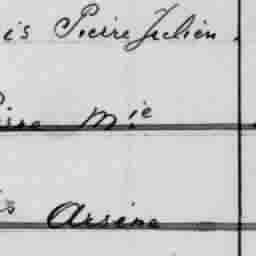 is Pierre Julien.
Mie
is Arsène